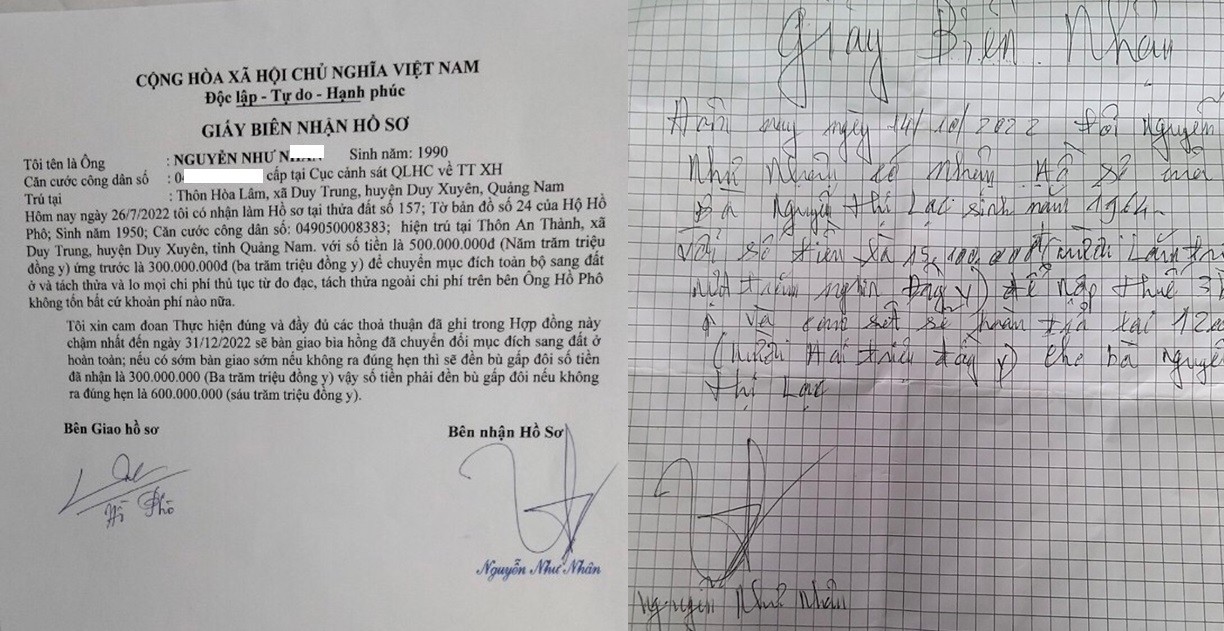 CỘNG HÒA XÃ HỘI CHỦ NGHĨA VIỆT NAM
Độc lập - Tự do - Hạnh phúc
GIẤY BIÊN NHẬN HỒ SƠ
Tôi tên là Ông : NGUYỄN NHƯ Sinh năm: 1990
Căn cước công dân số : 0 cấp tại Cục cảnh sát QLHC về TT XH
Trú tại : Thôn Hòa Lâm, xã Duy Trung, huyện Duy Xuyên, Quảng Nam
Hôm nay ngày 26/7/2022 tôi có nhận làm Hồ sơ tại thửa đất số 157; Tờ bản đồ số 24 của Hộ Hồ
Phô; Sinh năm 1950; Căn cước công dân số: 049050008383; hiện trú tại Thôn An Thành, xã
Duy Trung, huyện Duy Xuyên, tỉnh Quảng Nam. với số tiền là 500.000.000đ (Năm trăm triệu
đồng y) ứng trước là 300.000.000đ (ba trăm triệu đồng y) để chuyển mục đích toàn bộ sang đất
ở và tách thửa và lo mọi chi phí thủ tục từ đo đạc, tách thửa ngoài chi phí trên bên Ông Hồ Phô
không tốn bất cứ khoản phí nào nữa.
Tôi xin cam đoan Thực hiện đúng và đầy đủ các thoả thuận đã ghi trong Hợp đồng này
chậm nhất đến ngày 31/12/2022 sẽ bàn giao bìa hồng đã chuyển đổi mục đích sang đất ở
hoàn toàn; nếu có sớm bàn giao sớm nếu không ra đúng hẹn thì sẽ đền bù gấp đôi số tiền
đã nhận là 300.000.000 (Ba trăm triệu đồng y) vậy số tiền phải đền bù gấp đôi nếu không
ra đúng hẹn là 600.000.000 (sáu trăm triệu đồng y).
Bên Giao hồ sơ Bên nhận Hồ Sơ
Hồ Phô
Nguyễn Như Nhân
Giấy Biên Nhận
Hôm nay ngày 14/10/2022 tôi Nguyễn
Như Nhân có nhận Hồ sơ của
Bà Nguyễn thị Lạc sinh năm 1964
Với số tiền là
nghìn đồng y) để nộp thuế
và sẽ hoàn trả lại
(mười Hai triệu đồng y) cho bà Nguyễn
thị Lạc
Nguyễn Như Nhân